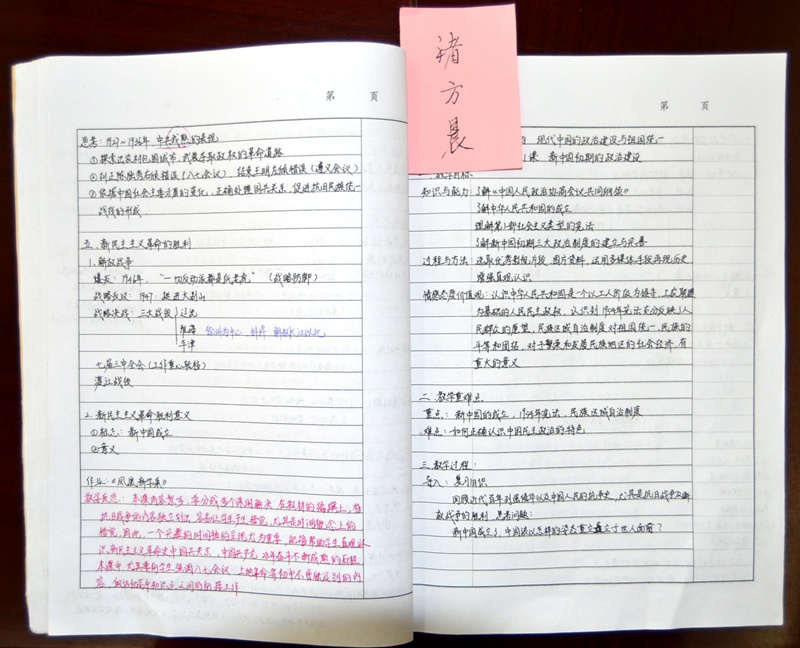 第 页
思考：1927~1936年，中共成熟的表现
①探索出农村包围城市，武装夺取政权的革命道路
②纠正陈独秀右倾错误（八七会议），结束王明左倾错误（遵义会议）
③依据中国社会主要矛盾的变化，正确处理国共关系，促进抗日民族统一
战线的形成
五、新民主主义革命的胜利
1. 解放战争
爆发：1946，“一切反动派都是纸老虎”（战略防御）
战略反攻：1947：挺进大别山
战略决战：三大战役 辽沈
淮海 徐州为中心 解放长江以北
平津
七届三中全会（工作重心转移）
渡江战役
2. 新民主主义革命胜利意义
①标志：新中国成立
②意义
作业：
教学反思：本课内容繁多，要分成多个课时解决，在教材的编撰上，将
抗日战争的内容独立列出，容易让学生产生错觉，尤其是时间概念上的
错觉，因此，一个完整的时间轴的呈现尤为重要，能够帮助学生直观认
识新民主主义革命史中国共关系，中国共产党28年奋斗不断成熟的历程
本课中尤其要向学生强调八七会议，土地革命等初中不曾提及到的内
容，做好初高中知识点之间的衔接工作
褚方晨
第 页
现代中国的政治建设与祖国统一
课 新中国初期的政治建设
一、教学目标：
知识与能力：了解《中国人民政治协商会议共同纲领》
了解中华人民共和国的成立
理解第1部社会主义类型的宪法
了解新中国初期三大政治制度的建立与完善
过程与方法：选取优秀影视片段，图片资料，运用多媒体手段再现历史
增强直观认识
情感态度价值观：认识中华人民共和国是个以工人阶级为领导，工农联盟
为基础的人民民主政权，认识到1954年宪法充分反映了人
民群众的愿望，民族区域自治制度对祖国统一，民族的
平等和团结，对于繁荣和发展民族地区的社会经济，有
重大的意义
二、教学重难点
重点：新中国的成立，1954年宪法，民族区域自治制度
难点：如何正确认识中国民主政治的特色
三、教学过程：
导入：复习旧识
回顾近代百年列强侵华以及中国人民的抗争史，尤其是抗日战争和解
放战争的胜利，思考问题：
新中国成立了，中国将以怎样的姿态重新矗立于世人面前？